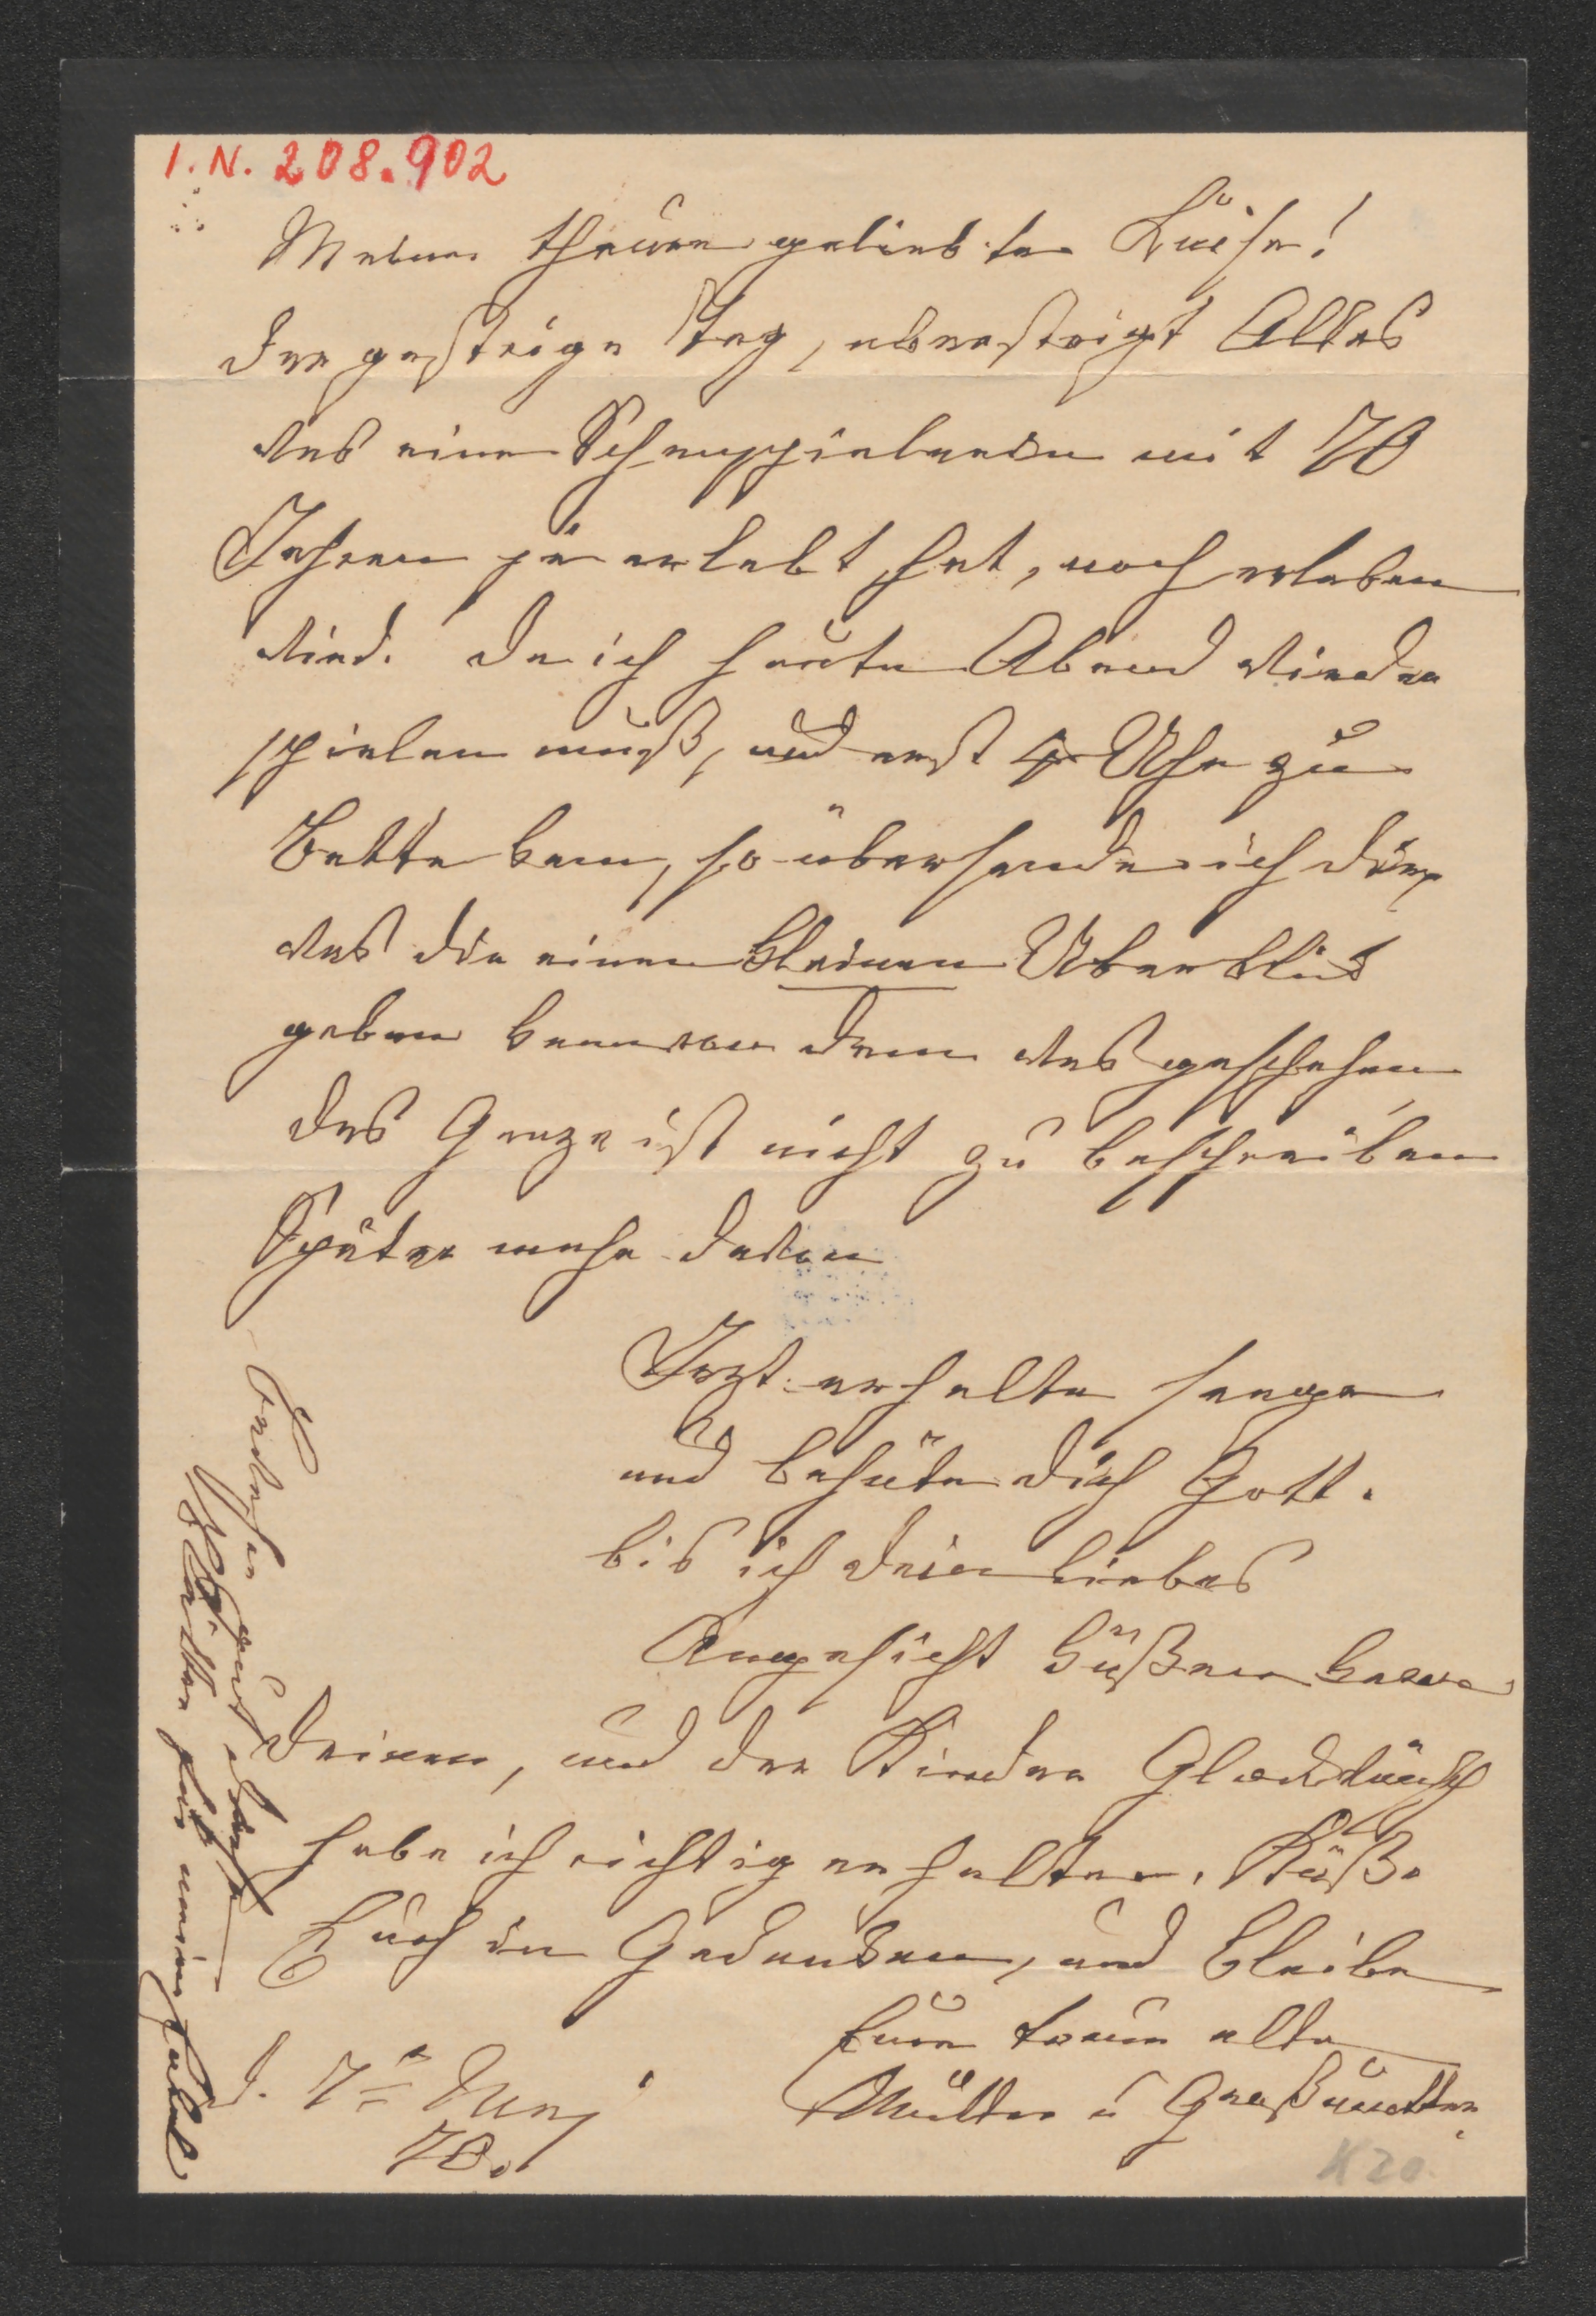 I.N. 208.902
Meine theure geliebte Luise!
Der gestrige Tag, übersteigt Alles
was eine Schauspielerin mit 70
Jahren je erlebt hat, noch erleben
wird. Da ich heute Abend wieder
spielen muß, und erst 4 Uhr zu
Bette kam, so übersende ich Dir
was dir einen kleinen Überblick
geben kann von dem was geschehen
das Ganze ist nicht zu beschreiben
Später mehr davon
Jezt erhalte seegne
und behüte dich Gott.
bis ich dein liebes
Angesicht küßen kann
Deinen, und der Kinder Glückwünsch
habe ich richtig erhalten. Küße
Euch in Gedanken, und bleibe
Eure treue alte
Mutter u Großmutter
d. 7n
70.
Blätter für mein
K 20.